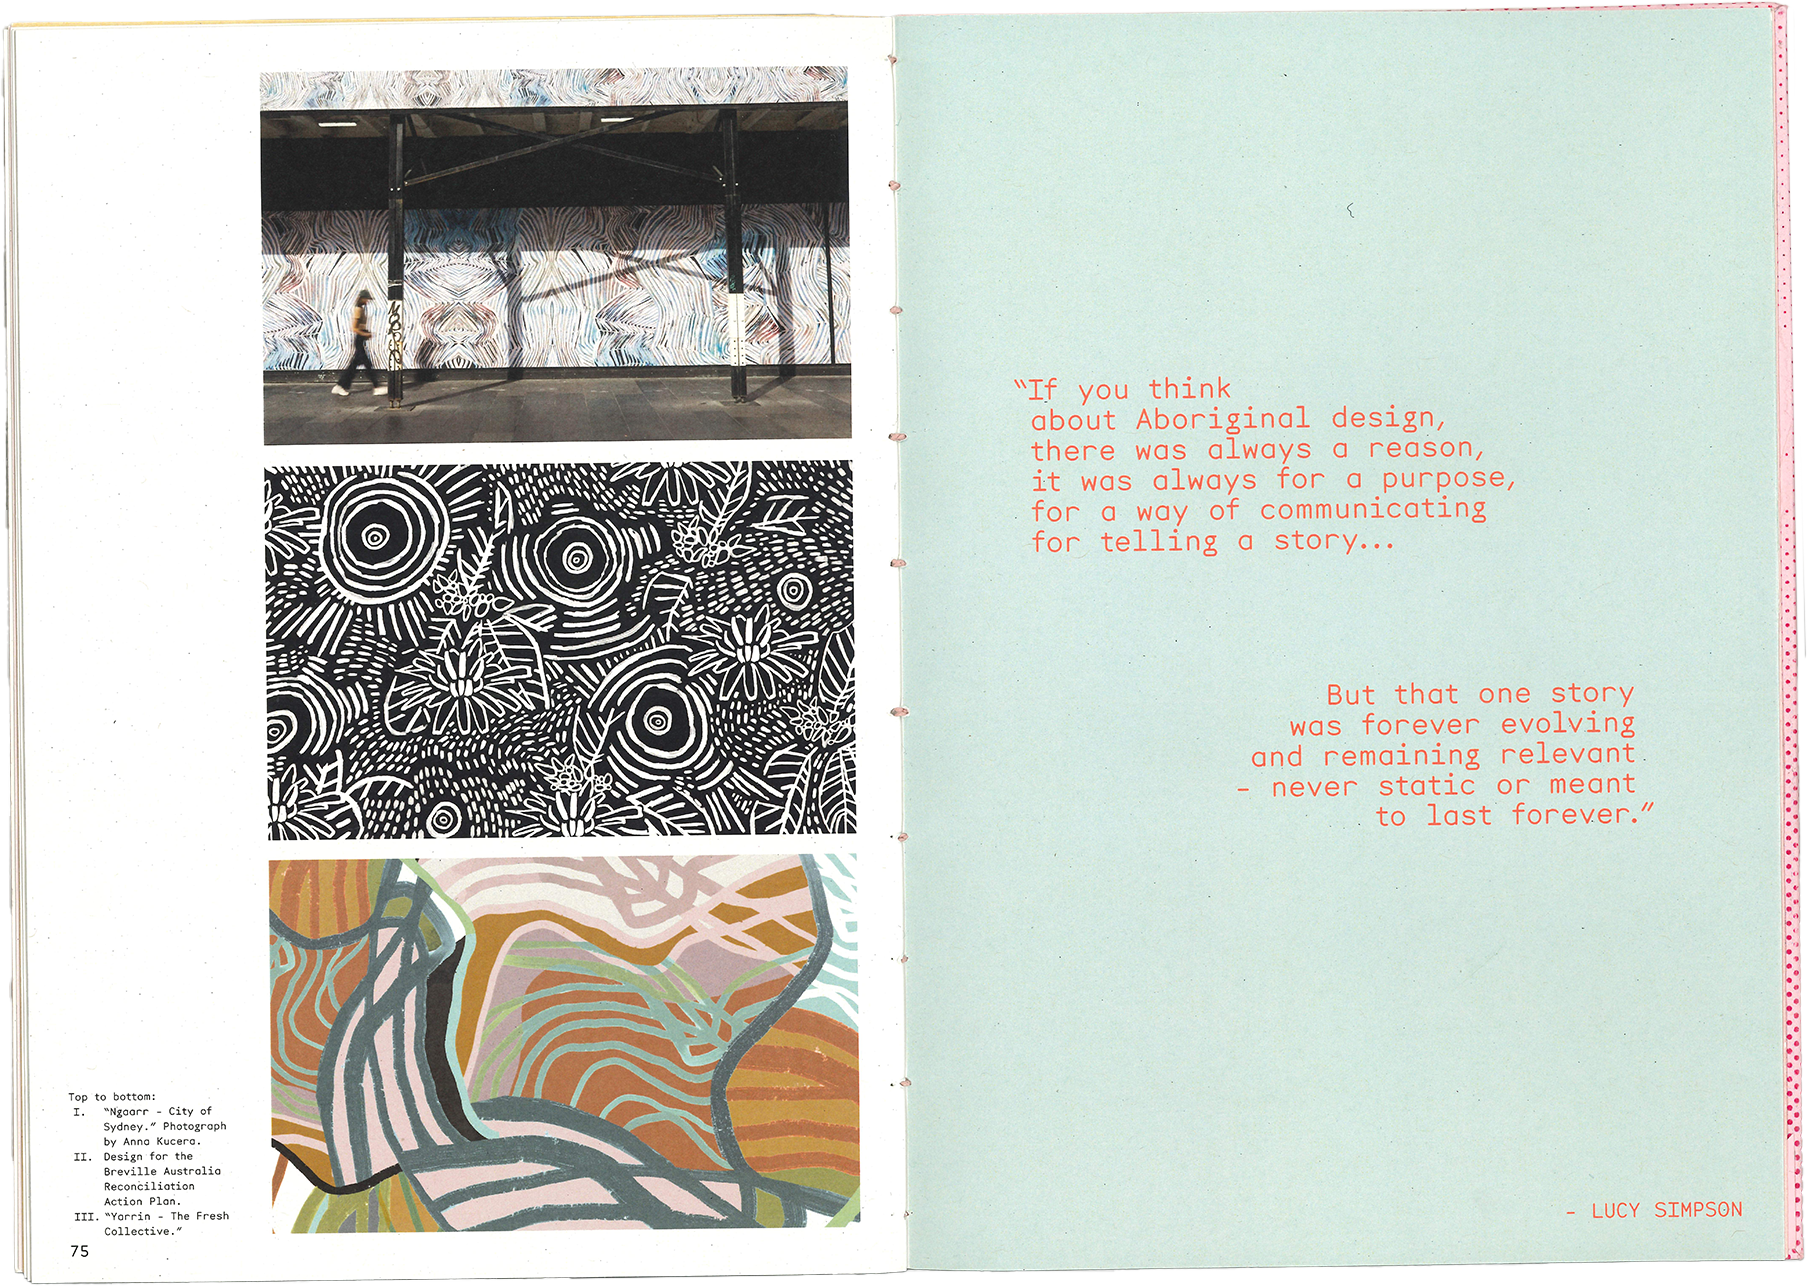 Top to bottom:
I. "Ngaarr - City of
Sydney." Photograph
by Anna Kucera.
II. Design for the
Breville Australia
Reconciliation
Action Plan.
III. "Yarrin - The Fresh
Collective."
75
"If you think
about Aboriginal design,
there was always a reason,
it was always for a purpose,
for a way of communicating
for telling a story...
But that one story
was forever evolving
and remaining relevant
- never static or meant
to last forever."
- LUCY SIMPSON